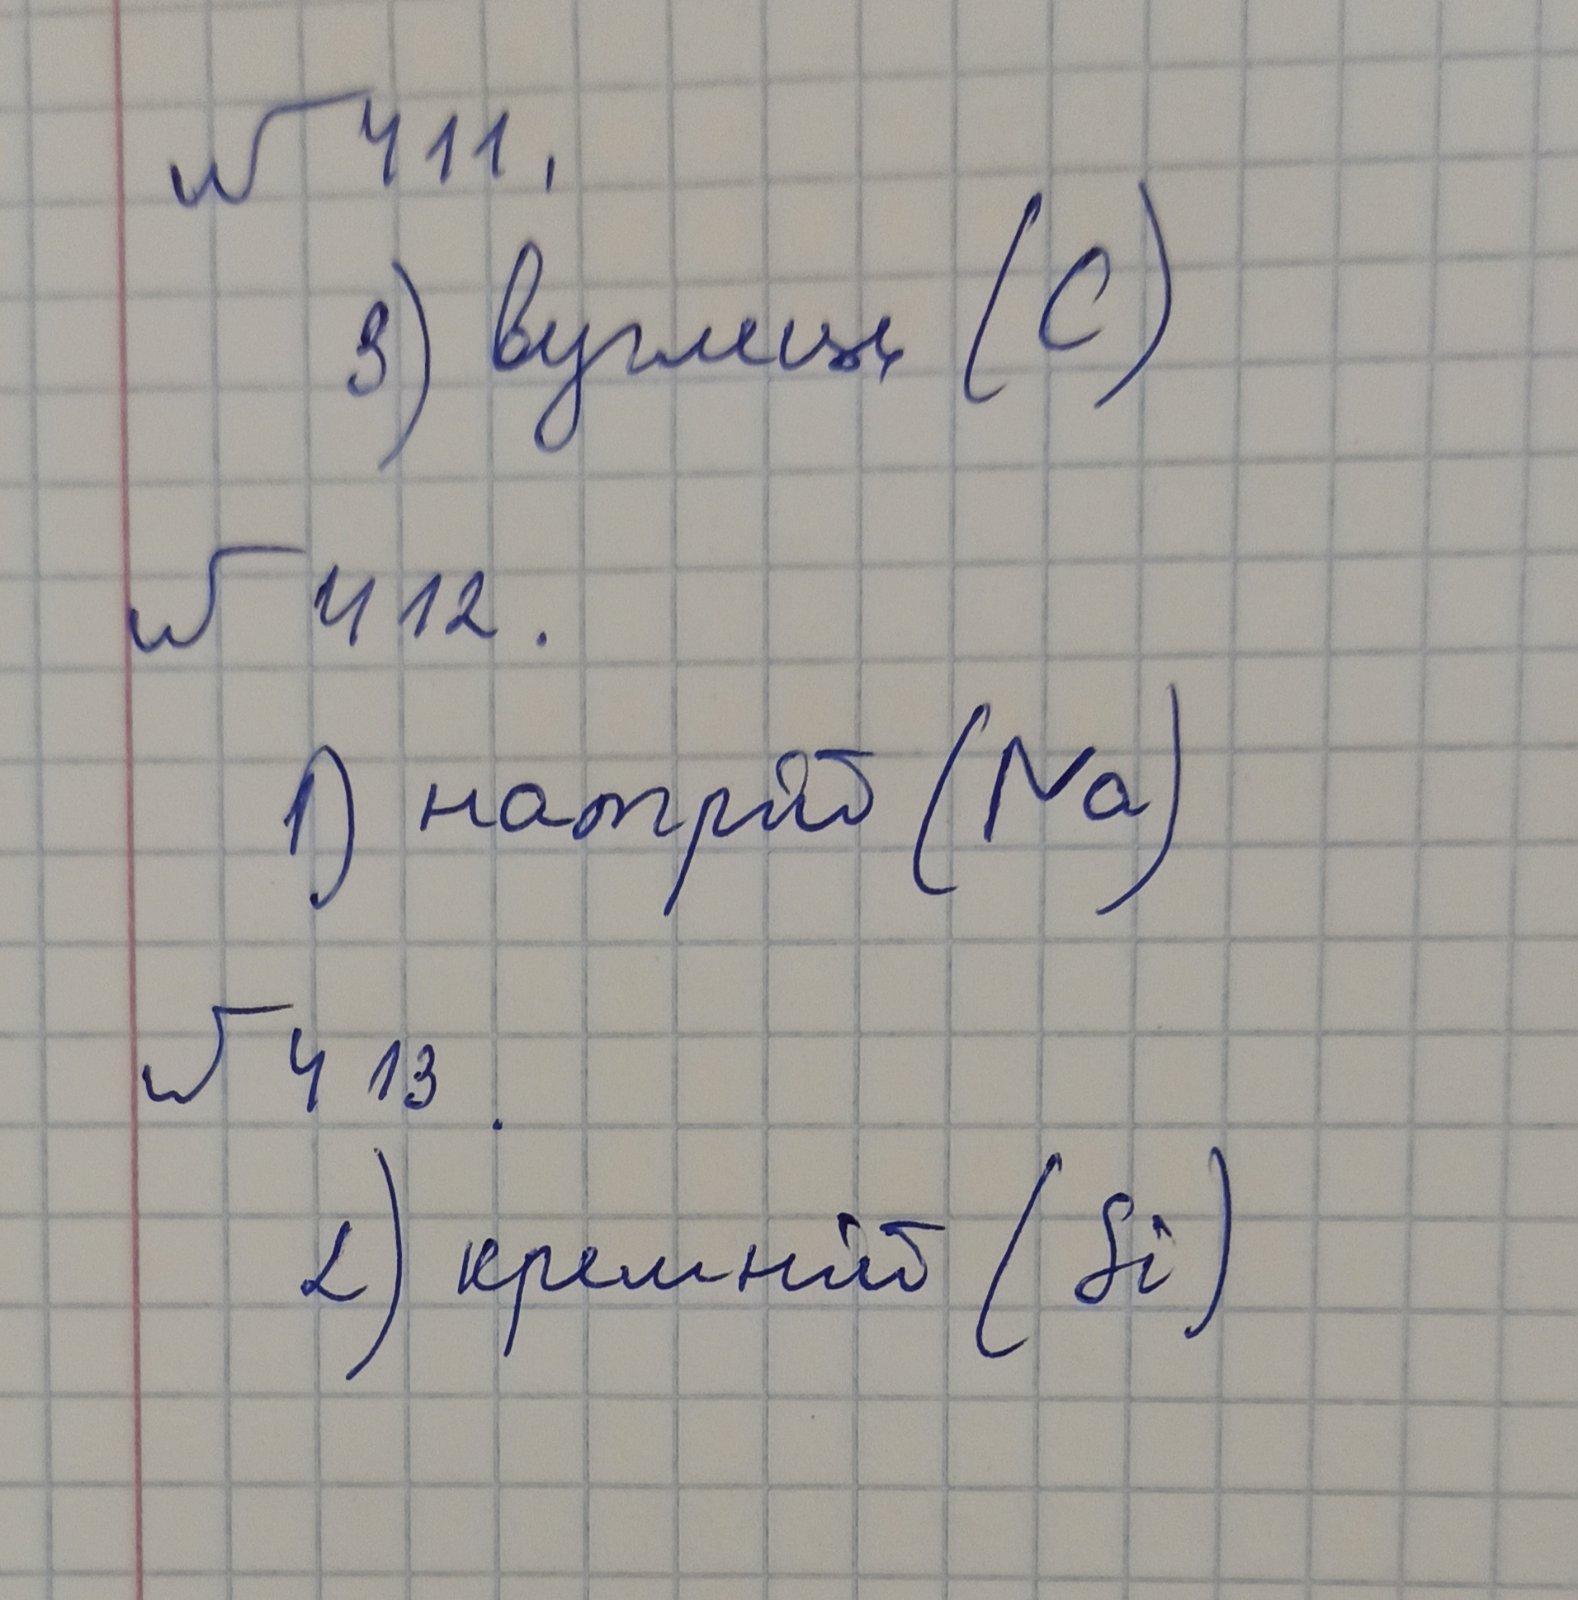 № 411.
3) вуглець (C)
№ 412.
1) натрій (Na)
№ 413.
2) кремній (Si)